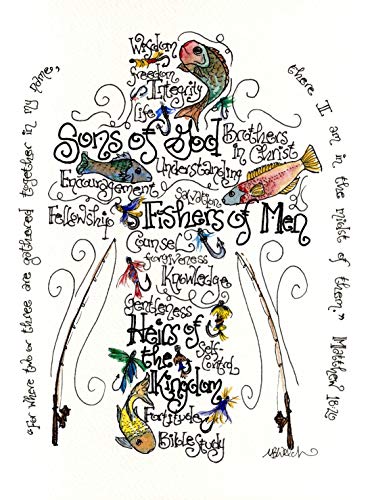 "For where two or three are gathered together in my name,
there I am in the midst of them." Matthew 18:20
Wisdom
Freedom
Integrity
Life
Sons of God
Brothers
in Christ
Understanding
Encouragement
Salvation
Fellowship
Fishers of Men
Counsel
Forgiveness
Knowledge
Gentleness
Heirs of
the
Kingdom
Self-
Control
Fortitude
Bible Study